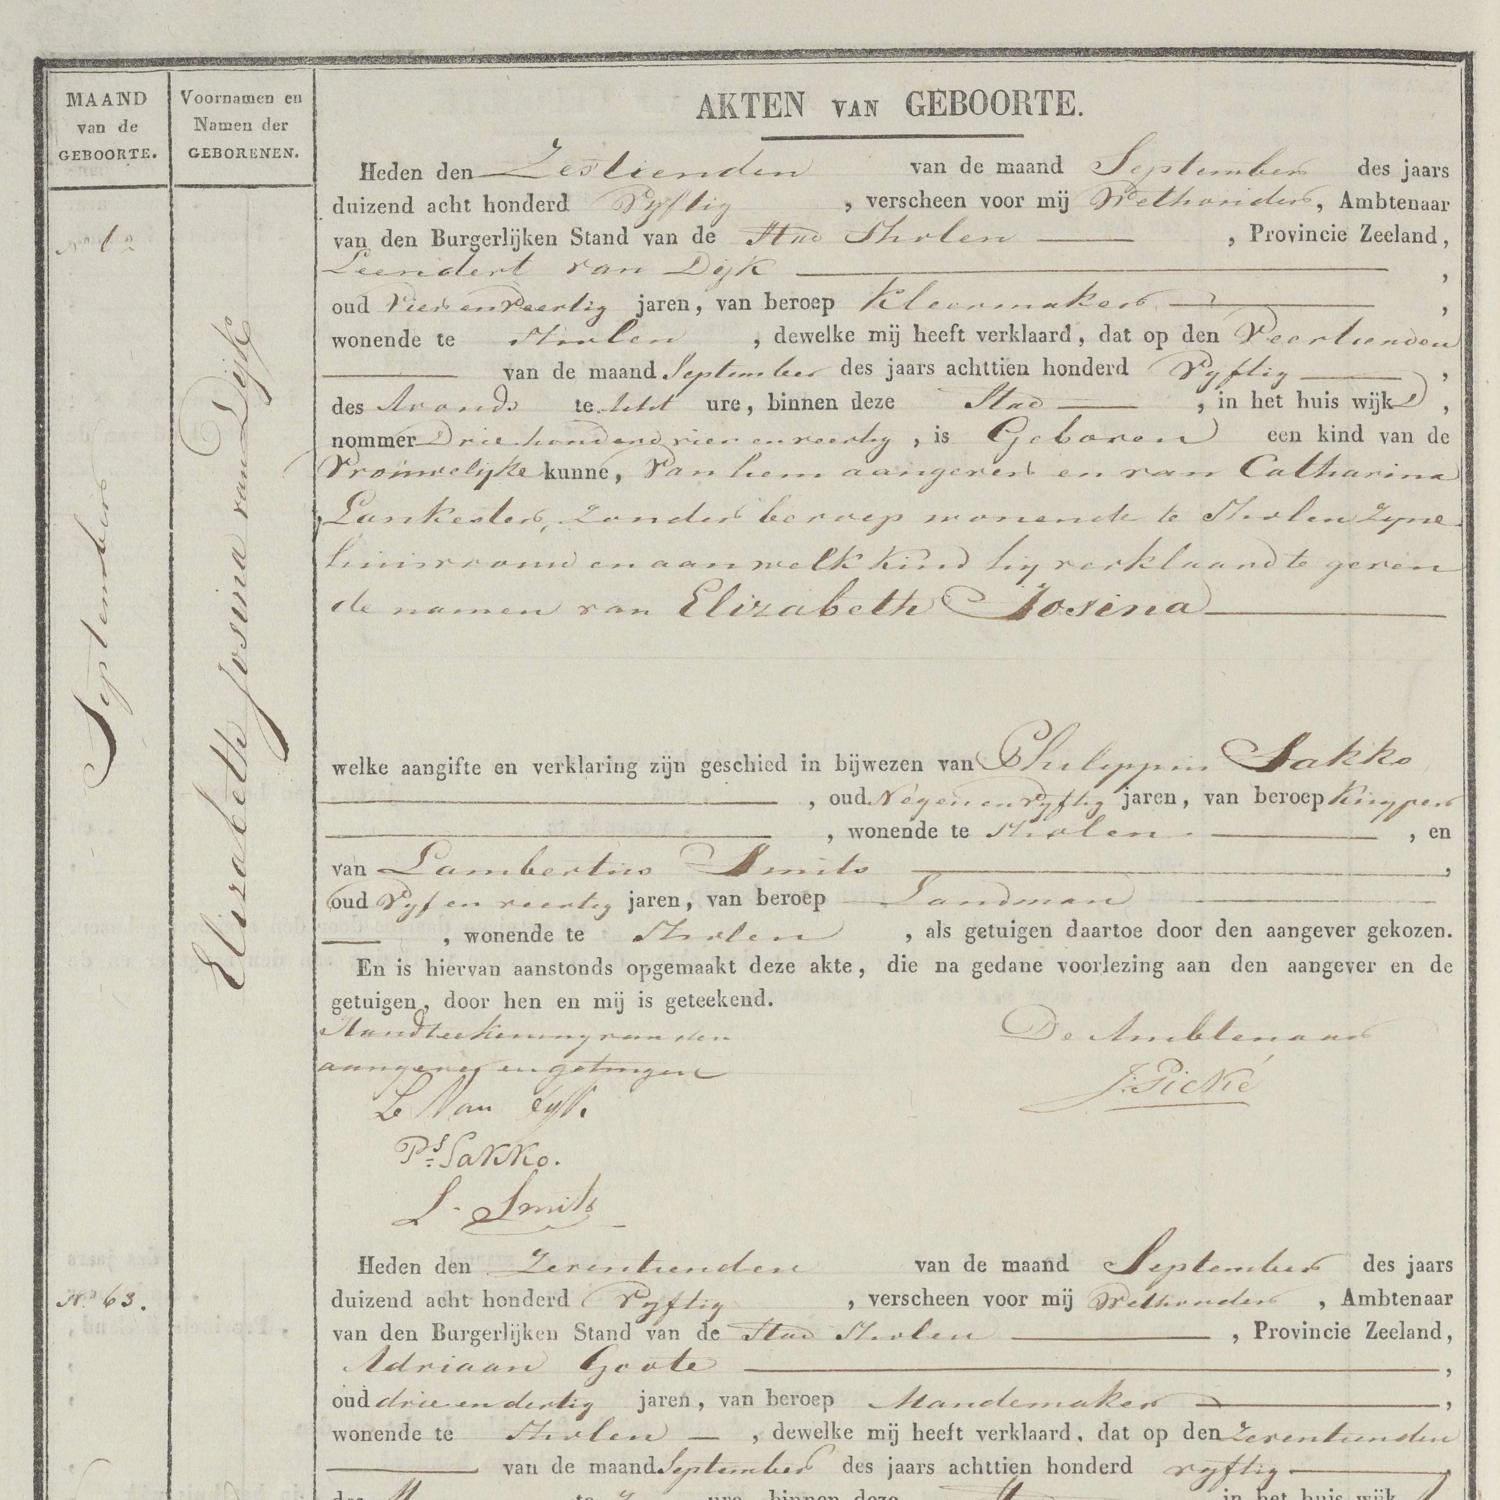 MAAND
van de
GEBOORTE.
Voornamen en
Namen der
GEBORENEN.
AKTEN VAN GEBOORTE.
September
Elizabeth Josina van Dijk
Heden den Zestienden van de maand September des jaars
duizend acht honderd Vyftig , verscheen voor mij Wethouder, Ambtenaar
van den Burgerlijken Stand van de Stad Tholen , Provincie Zeeland,
Leendert van Dijk ,
oud Vier en Veertig jaren, van beroep Kleermaker ,
wonende te Tholen , dewelke mij heeft verklaard, dat op den Veertienden
van de maand September des jaars achttien honderd Vyftig ,
des Avonds te acht ure, binnen deze Stad , in het huis wijk D ,
nommer Drie honderd vier en veertig , is Geboren een kind van de
Vrouwelyke kunne, Van hem aangever en van Catharina
Lankester, zonder beroep wonende te Tholen Zyne
huisvrouw en aan welk kind hy verklaard te geven
de namen van Elizabeth Josina
welke aangifte en verklaring zijn geschied in bijwezen van Philippus Sakko
, oud Negen en Vyftig jaren, van beroep Kuyper
, wonende te Tholen , en
van Lambertus Smits ,
oud Vyf en veertig jaren, van beroep Landman
, wonende te Tholen , als getuigen daartoe door den aangever gekozen.
En is hiervan aanstonds opgemaakt deze akte, die na gedane voorlezing aan den aangever en de
getuigen, door hen en mij is geteekend.
Handteekening van den
aangever en getuigen
De Ambtenaar
L Van Dyk.
J. Pické
Ps Sakko.
L. Smits
No 63.
Heden den Zeventienden van de maand September des jaars
duizend acht honderd Vyftig , verscheen voor mij Wethouder , Ambtenaar
van den Burgerlijken Stand van de Stad Tholen , Provincie Zeeland,
Adriaan Goote ,
oud drie en dertig jaren, van beroep Mandemaker ,
wonende te Tholen , dewelke mij heeft verklaard, dat op den Zeventienden
van de maand September des jaars achttien honderd vyftig
des te ure, binnen deze in het huis wijk